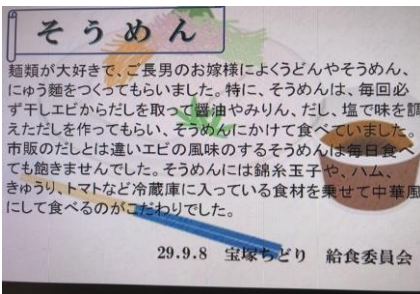 そうめん
麺類が大好きで、ご長男のお嫁様によくうどんやそうめん、
にゅう麺をつくってもらいました。特に、そうめんは、毎回必
ず干しエビからだしを取って醤油やみりん、だし、塩で味を調
えただしを作ってもらい、そうめんにかけて食べていました。
市販のだしとは違いエビの風味のするそうめんは毎日食べ
ても飽きませんでした。そうめんには錦糸玉子や、ハム、
きゅうり、トマトなど冷蔵庫に入っている食材を乗せて中華風
にして食べるのがこだわりでした。
29.9.8 宝塚ちどり 給食委員会